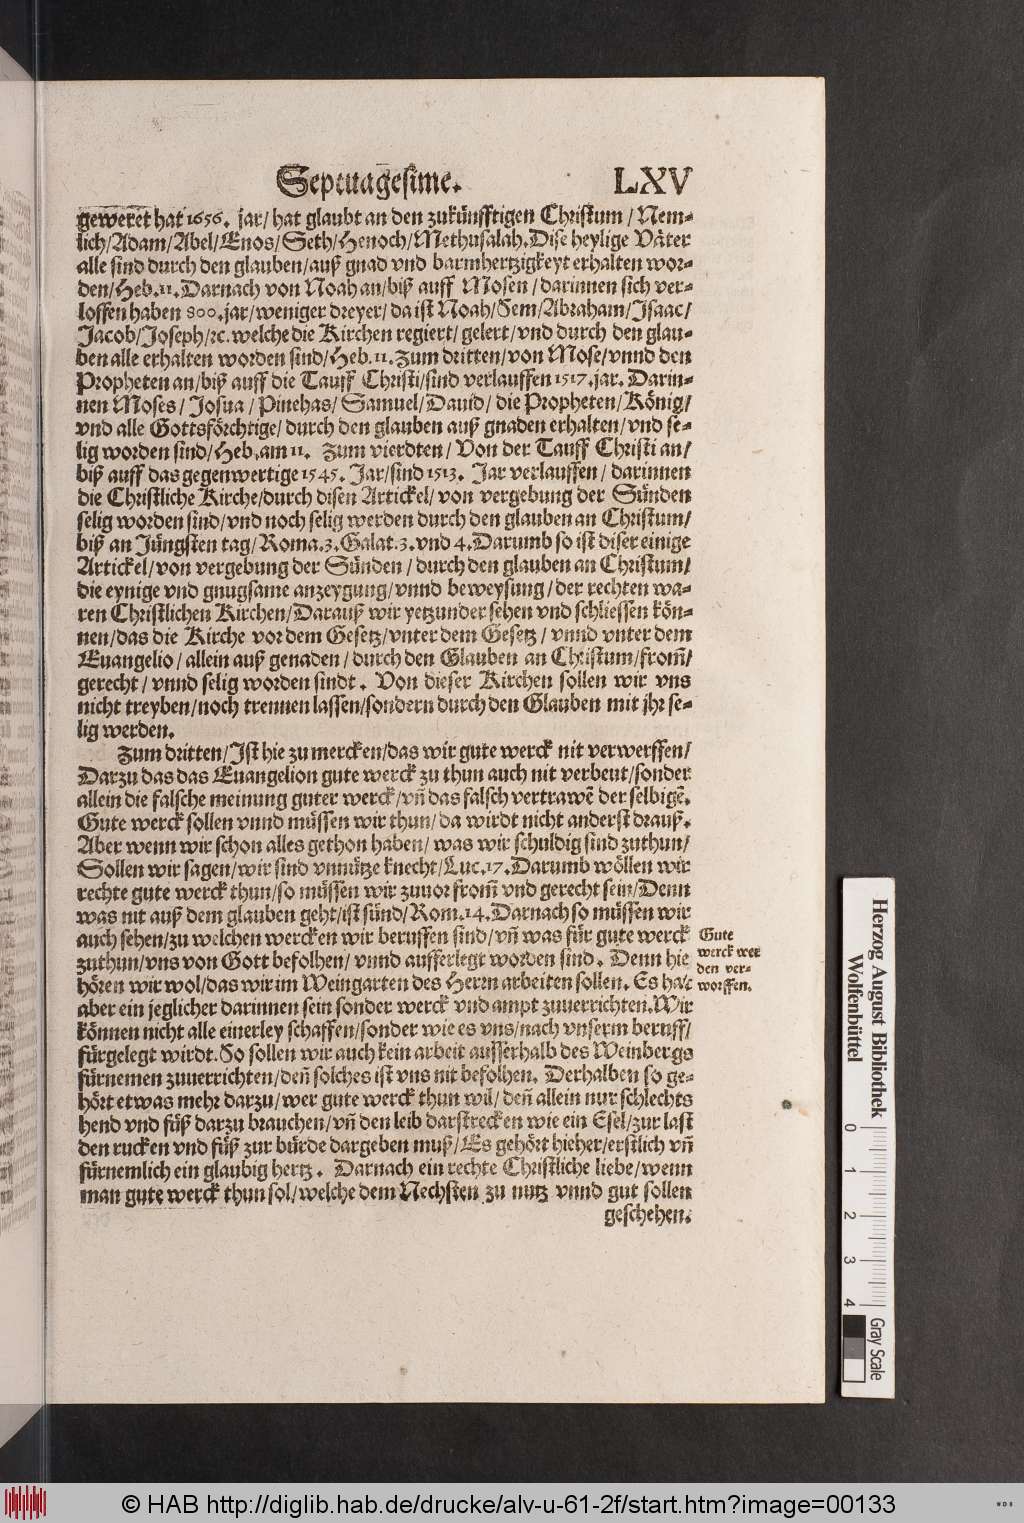 Septuagesime. LXV
geweret hat 1656. jar/ hat glaubt an den zukünfftigen Christum / Nem-
lich/Adam/Abel/Enos/Seth/Henoch/Methusalah. Dise heylige Väter
alle sind durch den glauben/auß gnad vnd barmhertzigkeyt erhalten wor-
den/Heb.11. Darnach von Noah an/biß auff Mosen / darinnen sich ver-
loffen haben 800. jar/weniger dreyer/ da ist Noah/Sem/Abraham/Isaac/
Jacob/Joseph/ꝛc. welche die Kirchen regiert/ gelert/ vnd durch den glau-
ben alle erhalten worden sind/Heb.11. Zum dritten/von Mose/vnnd den
Propheten an/biß auff die Tauff Christi/sind verlauffen 1517. jar. Darin-
nen Moses / Josua / Pinehas/ Samuel/Dauid/ die Propheten/König/
vnd alle Gottsförchtige/ durch den glauben auß gnaden erhalten/vnd se-
lig worden sind/Heb.am 11. Zum vierdten/ Von der Tauff Christi an/
biß auff das gegenwertige 1545. Jar/sind 1513. Jar verlauffen/ darinnen
die Christliche Kirche/durch disen Artickel/ von vergebung der Sünden
selig worden sind/vnd noch selig werden durch den glauben an Christum/
biß an Jüngsten tag/Roma.3. Galat.3. vnd 4. Darumb so ist diser einige
Artickel/von vergebung der Sünden / durch den glauben an Christum/
die eynige vnd gnugsame anzeygung/vnnd beweysung/der rechten wa-
ren Christlichen Kirchen/Darauß wir yetzunder sehen vnd schliessen kön-
nen/das die Kirche vor dem Gesetz/vnter dem Gesetz / vnnd vnter dem
Euangelio / allein auß genaden / durch den Glauben an Christum/from̃/
gerecht / vnnd selig worden sindt. Von dieser Kirchen sollen wir vns
nicht treyben/noch trennen lassen/sondern durch den Glauben mit jhr se-
lig werden.
Zum dritten/Ist hie zu mercken/das wir gute werck nit verwerffen/
Darzu das das Euangelion gute werck zu thun auch nit verbeut/sonder
allein die falsche meinung guter werck/vñ das falsch vertrawẽ der selbigẽ.
Gute werck sollen vnnd müssen wir thun/ da wirdt nicht anderst drauß.
Aber wenn wir schon alles gethon haben/ was wir schuldig sind zuthun/
Sollen wir sagen/wir sind vnnütze knecht/Luc.17. Darumb wöllen wir
rechte gute werck thun/so müssen wir zuuor from̃ vnd gerecht sein/Denn
was nit auß dem glauben geht/ist sünd/Rom.14. Darnach so müssen wir
auch sehen/zu welchen wercken wir beruffen sind/vñ was für gute werck
zuthun/vns von Gott befolhen/ vnnd aufferlegt worden sind. Denn hie
hören wir wol/das wir im Weingarten des Herrn arbeiten sollen. Es hat
aber ein jeglicher darinnen sein sonder werck vnd ampt zuuerrichten. Wir
können nicht alle einerley schaffen/sonder wie es vns/nach vnserm beruff/
fürgelegt wirdt. So sollen wir auch kein arbeit ausserhalb des Weinbergs
fürnemen zuuerrichten/deñ solches ist vns nit befolhen. Derhalben so ge-
hört etwas mehr darzu/wer gute werck thun wil/ deñ allein nur schlechts
hend vnd füß darzu brauchen/vñ den leib darstrecken wie ein Esel/zur last
den rucken vnd füß zur bürde dargeben muß/Es gehört hieher/erstlich vñ
fürnemlich ein glaubig hertz. Darnach ein rechte Christliche liebe/wenn
man gute werck thun sol/welche dem Nechsten zu nutz vnnd gut sollen
geschehen.
Gute
werck wer
den ver-
worffen.
Herzog August Bibliothek
Wolfenbüttel
0 1 2 3 4
Gray Scale
© HAB http://diglib.hab.de/drucke/alv-u-61-2f/start.htm?image=00133